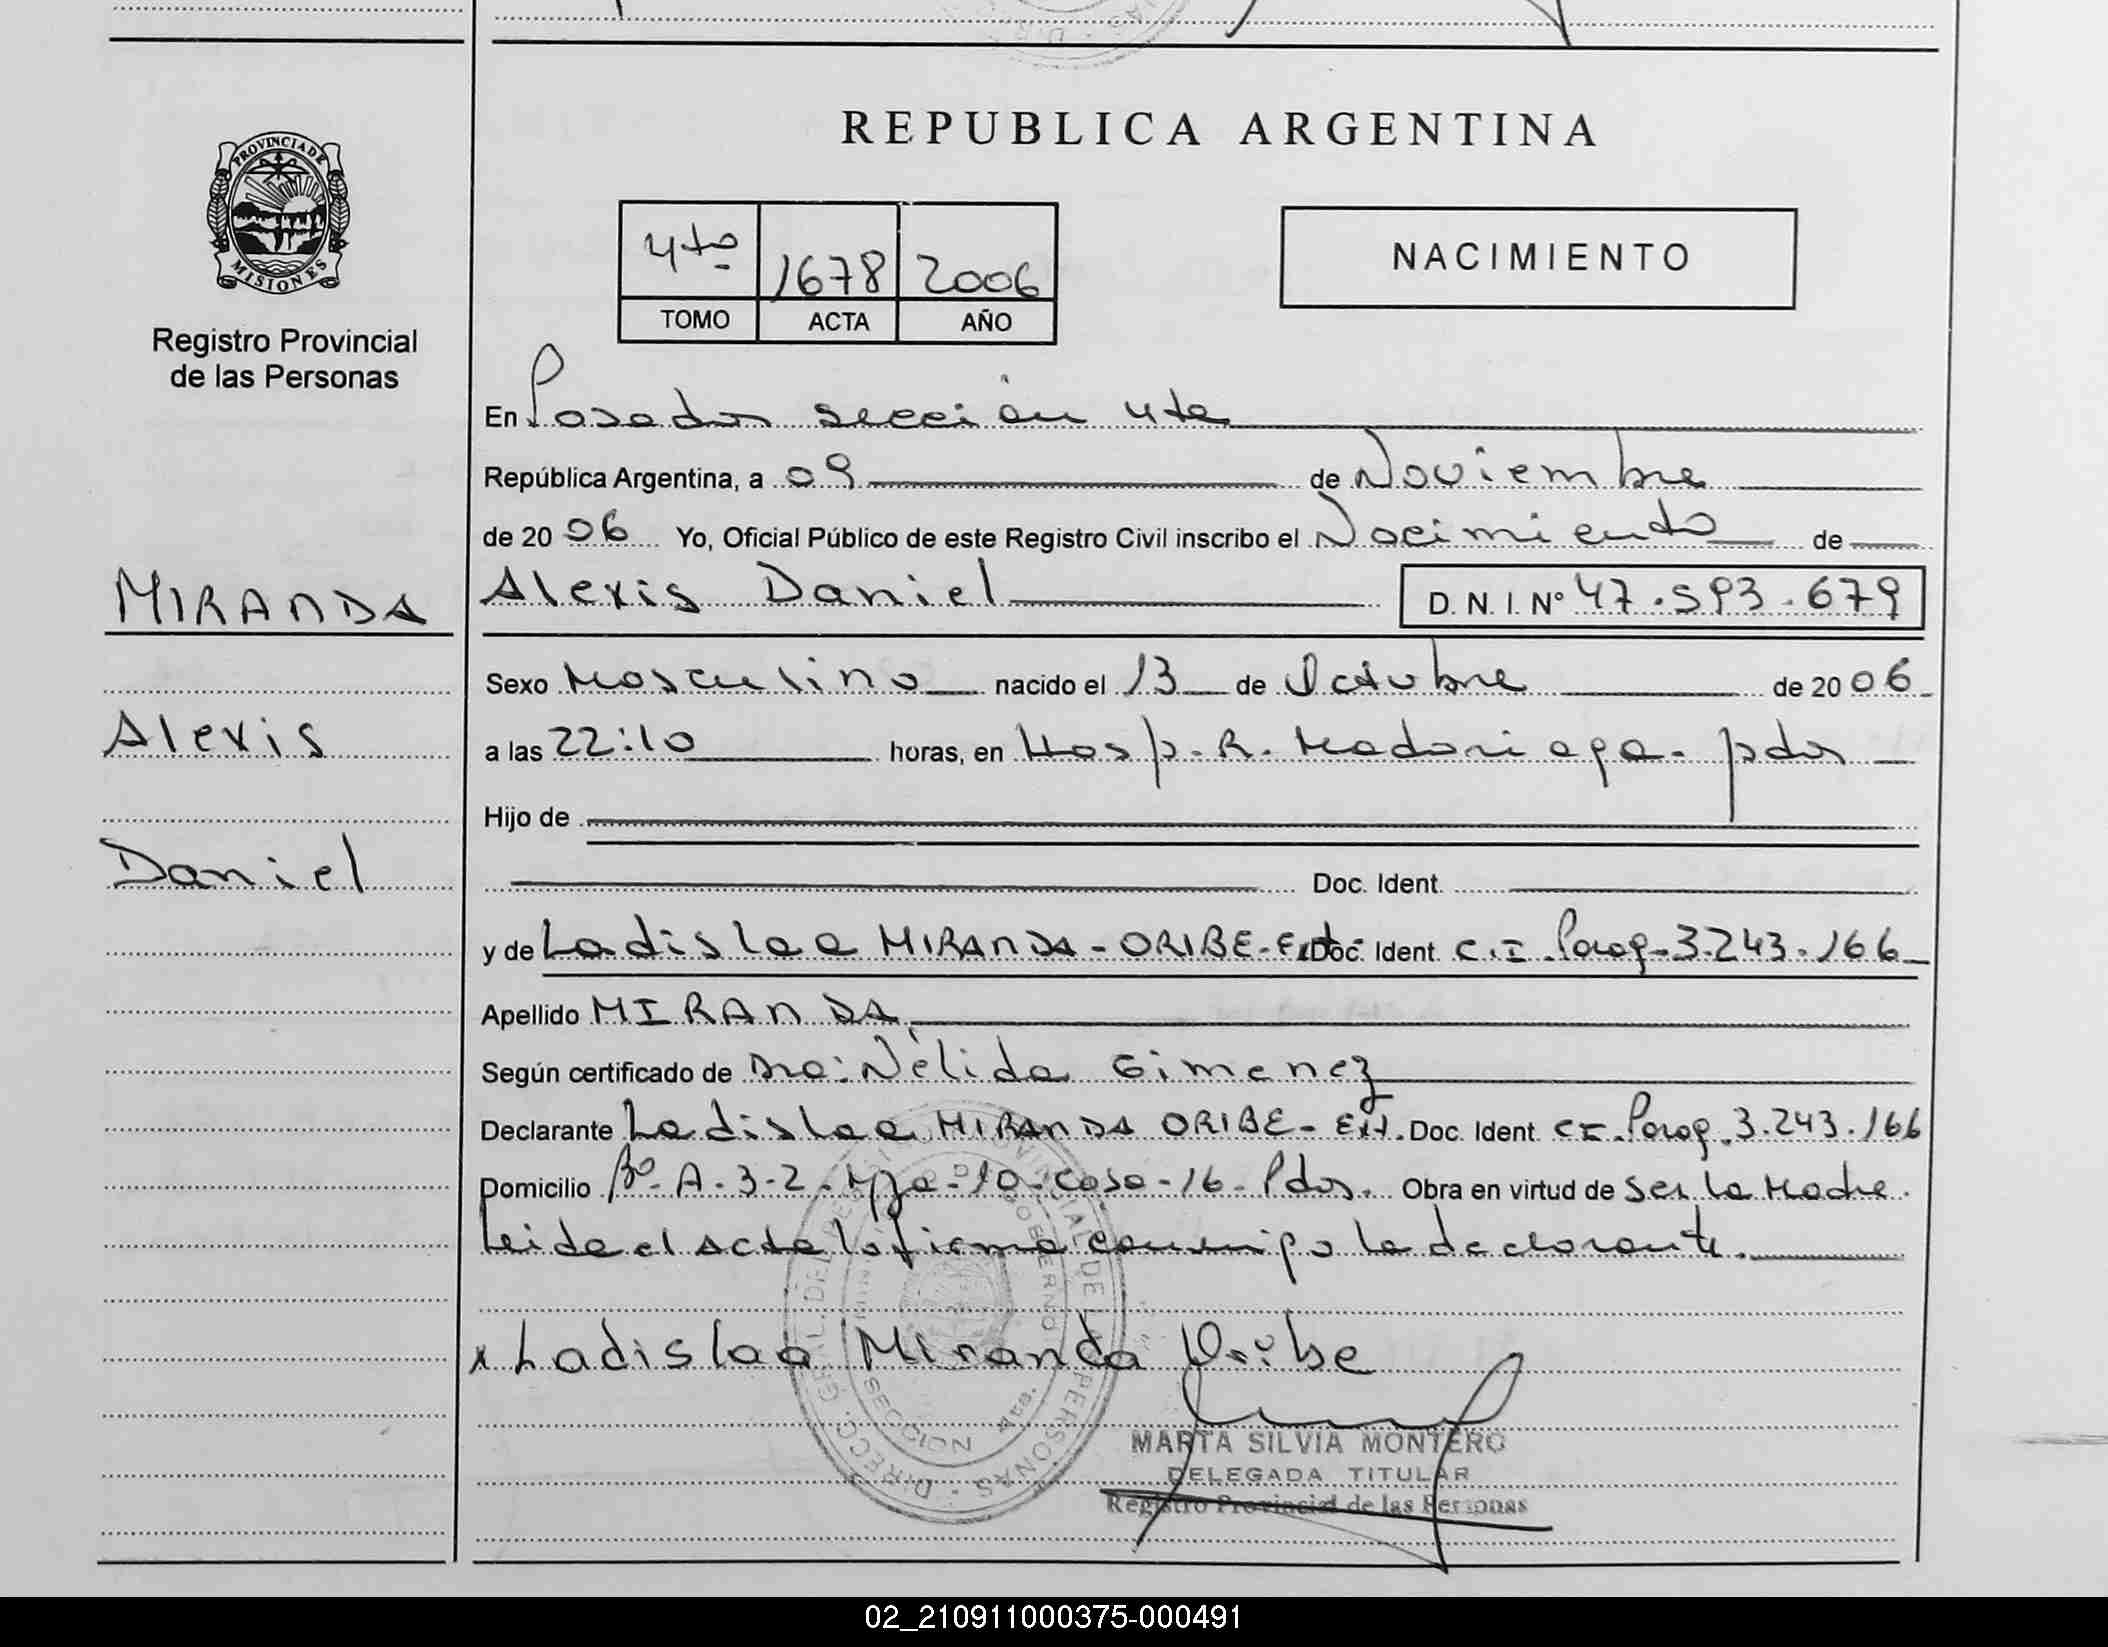 REPUBLICA ARGENTINA
PROVINCIA DE
MISIONES
Registro Provincial
de las Personas
4to 1678 2006
TOMO ACTA AÑO
NACIMIENTO
En Posadas sección 4ta
República Argentina, a 09 de Noviembre
de 2006 Yo, Oficial Público de este Registro Civil inscribo el Nacimiento de
MIRANDA
Alexis Daniel D.N.I. Nº 47.593.679
Sexo Masculino nacido el 13 de Octubre de 2006
Alexis
a las 22:10 horas, en Hosp. R. Madariaga - pdas
Hijo de
Daniel
Doc. Ident.
y de Ladislaa MIRANDA - ORIBE - Ext. Doc. Ident. C.I. Parag. 3.243.166
Apellido MIRANDA
Según certificado de Dra: Nélida Gimenez
Declarante Ladislaa MIRANDA ORIBE - Ext. Doc. Ident. CI. Parag. 3.243.166
Domicilio Bº. A-3-2. Mza-10-casa-16-Pdas. Obra en virtud de ser la Madre.
Leida el acta la firma conmigo la declarante.
x Ladislaa Miranda Oribe
DIRECC. GRAL. DEL REG. PROVINCIAL DE LAS PERSONAS
SECCION 4ta.
MARTA SILVIA MONTERO
DELEGADA TITULAR
Registro Provincial de las Personas
02_210911000375-000491